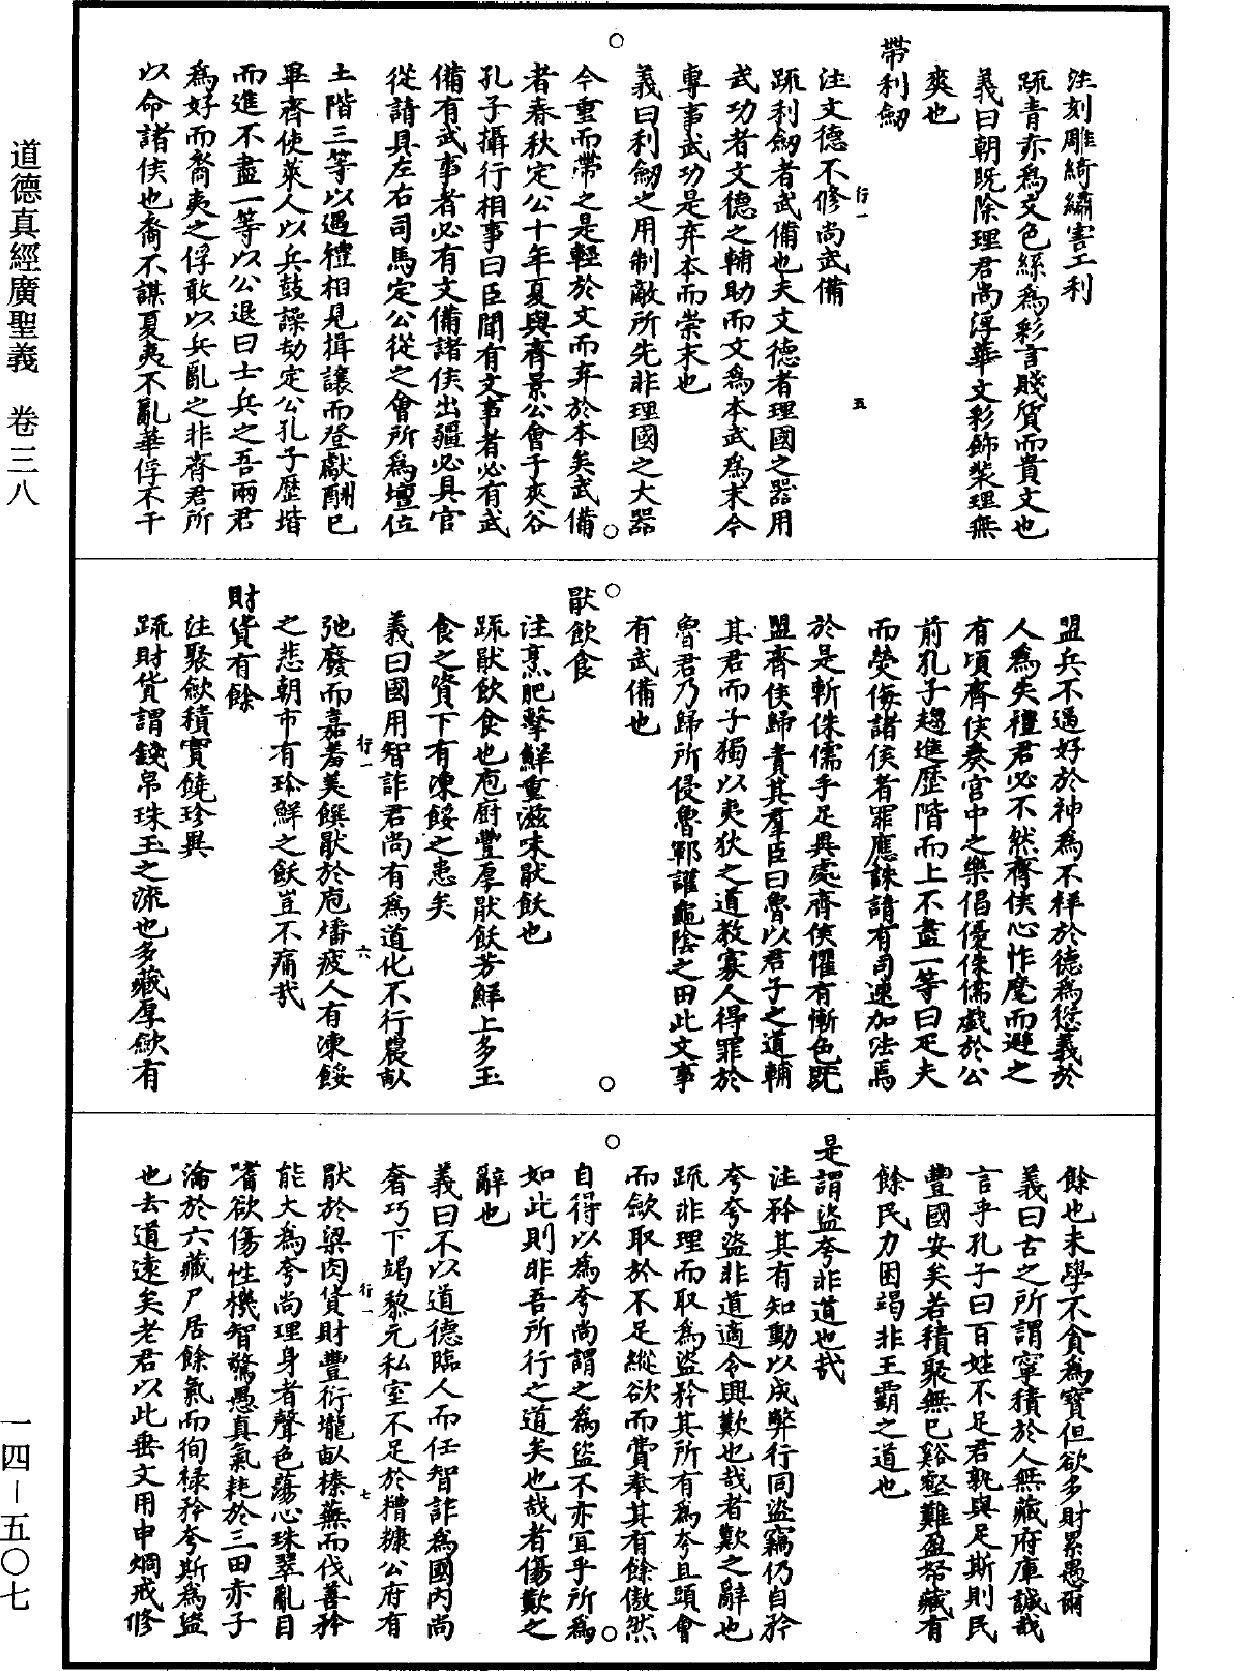 道德真經廣聖義　卷三八
一四—五〇七
注刻雕綺繡害工利
疏青赤為文色絲為彩言賤質而貴文也
義曰朝旣除理君尚浮華文彩飾裝理無
爽也
帶利劒
注文德不修尚武備
行一
五
疏利劒者武備也夫文德者理國之器用
武功者文德之輔助而文為本武為末今
專事武功是弃本而崇末也
義曰利劒之用制敵所先非理國之大器
今重而帶之是輕於文而弃於本矣武備
者春秋定公十年夏與齊景公會于夾谷
孔子攝行相事曰臣聞有文事者必有武
備有武事者必有文備諸侯出疆必具官
從請具左右司馬定公從之會所為壇位
土階三等以遇禮相見揖讓而登獻酬已
畢齊使萊人以兵鼓譟劫定公孔子歷堦
而進不盡一等以公退曰士兵之吾兩君
為好而裔夷之俘敢以兵亂之非齊君所
以命諸侯也裔不謀夏夷不亂華俘不干
盟兵不逼好於神為不祥於德為愆義於
人為失禮君必不然齊侯心怍麾而避之
有頃齊侯奏宮中之樂倡優侏儒戲於公
前孔子趨進歷階而上不盡一等曰疋夫
而熒侮諸侯者罪應誅請有司速加法焉
於是斬侏儒手足異處齊侯懼有慚色旣
盟齊侯歸責其羣臣曰魯以君子之道輔
其君而子獨以夷狄之道教寡人得罪於
魯君乃歸所侵魯鄆讙龜陰之田此文事
有武備也
猒飲食
注烹肥擊鮮重滋味猒飫也
疏猒飲食也庖廚豐厚猒飫芳鮮上多玉
食之資下有凍餒之患矣
義曰國用智詐君尚有為道化不行農畝
弛廢而嘉羞美饌猒於庖墦疲人有凍餒
行一
六
之悲朝市有珎鮮之飫豈不痛哉
財貨有餘
注聚歛積實饒珍異
疏財貨謂錢帛珠玉之流也多藏厚歛有
餘也未學不貪為寶但欲多財累愚爾
義曰古之所謂寧積於人無藏府庫誠哉
言乎孔子曰百姓不足君孰與足斯則民
豐國安矣若積聚無已谿壑難盈帑藏有
餘民力困竭非王霸之道也
是謂盜夸非道也哉
注矜其有知動以成弊行同盜竊仍自矜
夸夸盜非道適令興歎也哉者歎之辭也
疏非理而取為盜矜其所有為夸且頭會
而歛取於不足縱欲而賞奉其有餘傲然
自得以為夸尚謂之為盜不亦宜乎所為
如此則非吾所行之道矣也哉者傷歎之
辭也
義曰不以道德臨人而任智詐為國內尚
奢巧下竭黎元私室不足於糟糠公府有
猒於梁肉貨財豐衍壠畝榛蕪而伐善矜
行一
七
能大為夸尚理身者聲色蕩心珠翠亂目
嗜欲傷性機智驚愚真氣耗於三田赤子
淪於六藏尸居餘氣而徇祿矜夸斯為盜
也去道遠矣老君以此垂文用申炯戒修